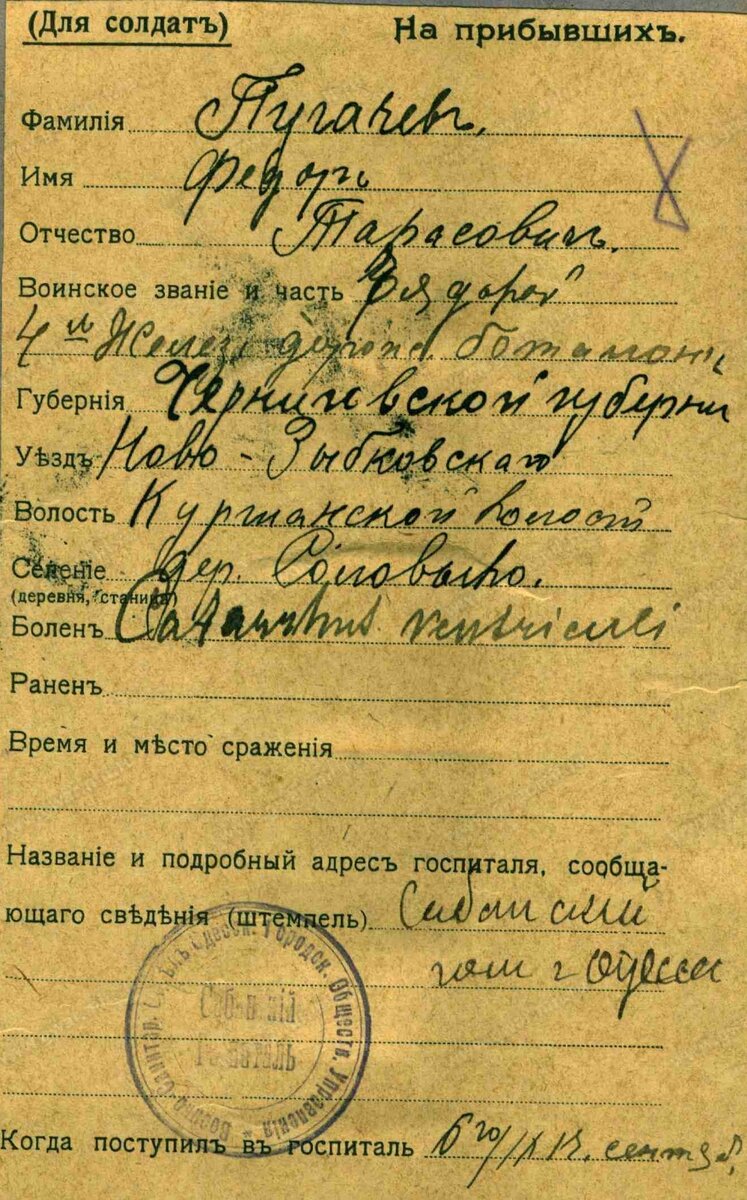 (Для солдатъ) На прибывшихъ.
Фамилія Пугачевъ,
Имя Федоръ
Отчество Тарасовичъ,
Воинское званіе и часть Рядовой
4й Желез. дорожн. баталіонъ
Губернія Черниговской губерни
Уѣздъ Ново-Зыбковскаго
Волость Куршанской волости
Селеніе дер.
(деревня, станица)
Боленъ Catarrhus ventriculi
Раненъ
Время и мѣсто сраженія
Названіе и подробный адресъ госпиталя, сообща-
ющаго свѣдѣнія (штемпель) Сабанскій
гош г Одесса
Военно-Санитар. Одесск. Городск. Обществ. Управленія
Саб-н-кій
Госпиталь
Когда поступилъ въ госпиталь 6го/IX сентяб.